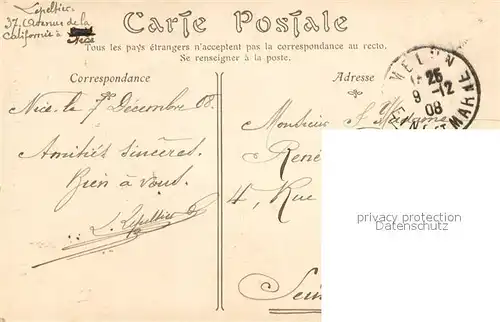 Lepeltier.
37, Avenue de la
Californie à Nice
Carte Postale
Tous les pays étrangers n'acceptent pas la correspondance au recto.
Se renseigner à la poste.
Correspondance
Adresse
MELUN
25
9-12
08
SEINE ET MARNE
Nice, le 7 Décembre 08.
Amitiés sincères.
Bien à vous.
L. Lepeltier
Monsieur & Madame
René
4, Rue
Sein
privacy protection
Datenschutz